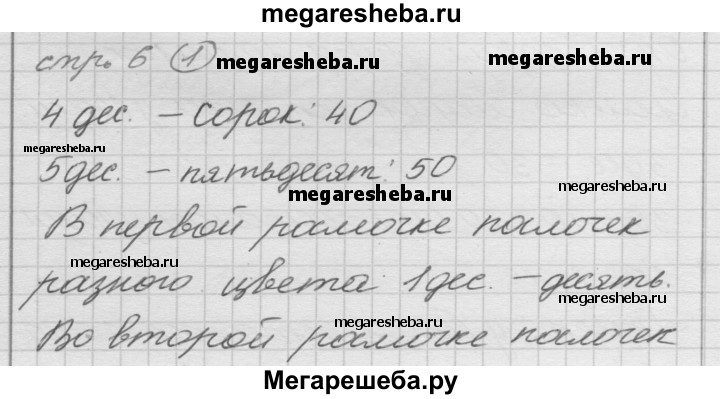 megaresheba.ru
стр. 6 (1) megaresheba.ru megaresheba.ru
4 дес. – сорок: 40
megaresheba.ru
5 дес. – пятьдесят: 50
megaresheba.ru megaresheba.ru
В первой рамочке палочек
megaresheba.ru
разного цвета: 1 дес. – десять.
megaresheba.ru
megaresheba.ru
Во второй рамочке палочек
Мегарешеба.ру